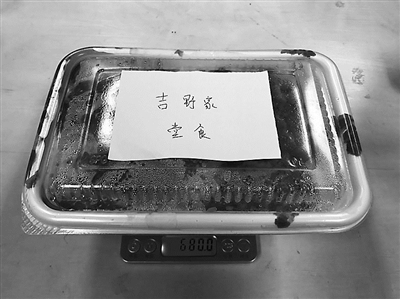 吉野家
堂食
680.0